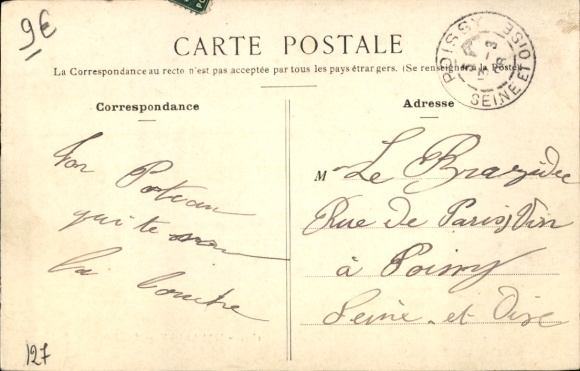 9€
CARTE POSTALE
La Correspondance au recto n'est pas acceptée par tous les pays étrangers. (Se renseigner à la Poste)
POISSY
SEINE ET OISE
Correspondance
Adresse
Ton Poteau
qui te
la
M Le
Rue de Paris
à Poissy
Seine-et-Oise
127